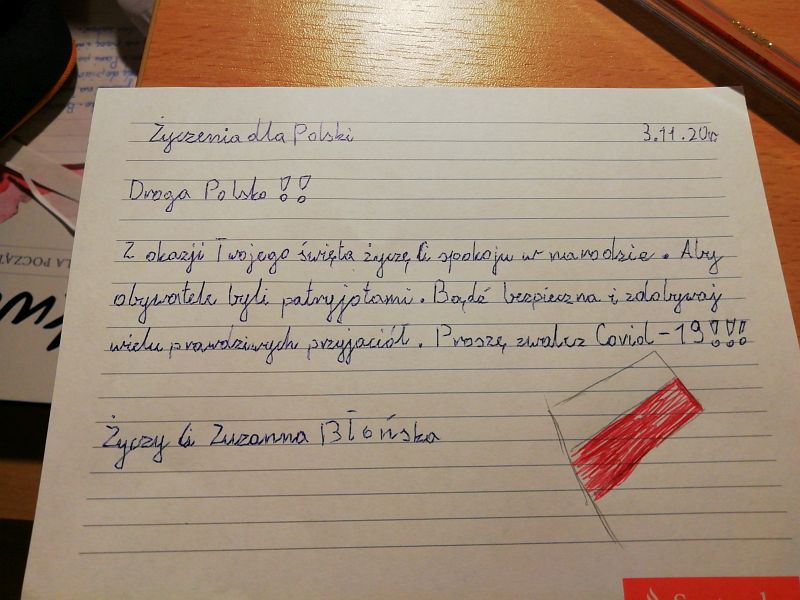 Życzenia dla Polski 3.11.20r.
Droga Polsko!!
Z okazji Twojego święta życzę Ci spokoju w narodzie. Aby
obywatele byli patryjotami. Bądź bezpieczna i zdobywaj
wielu prawdziwych przyjaciół. Proszę zwalcz Covid-19!!!
Życzy Ci Zuzanna Błońska
LA POCZĄT